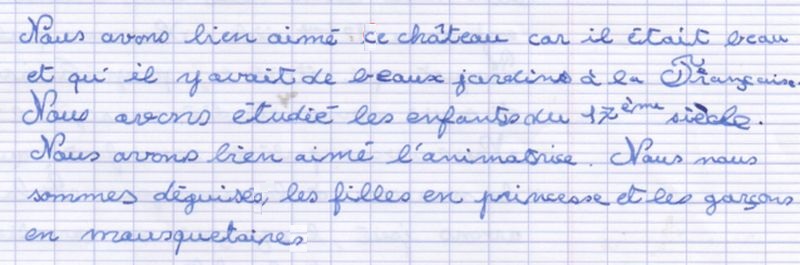 Nous avons bien aimé ce château car il était beau
et qu'il y avait de beaux jardins à la Française.
Nous avons étudié les enfants du 17ème siècle.
Nous avons bien aimé l'animatrice. Nous nous
sommes déguisés, les filles en princesse et les garçons
en mousquetaires